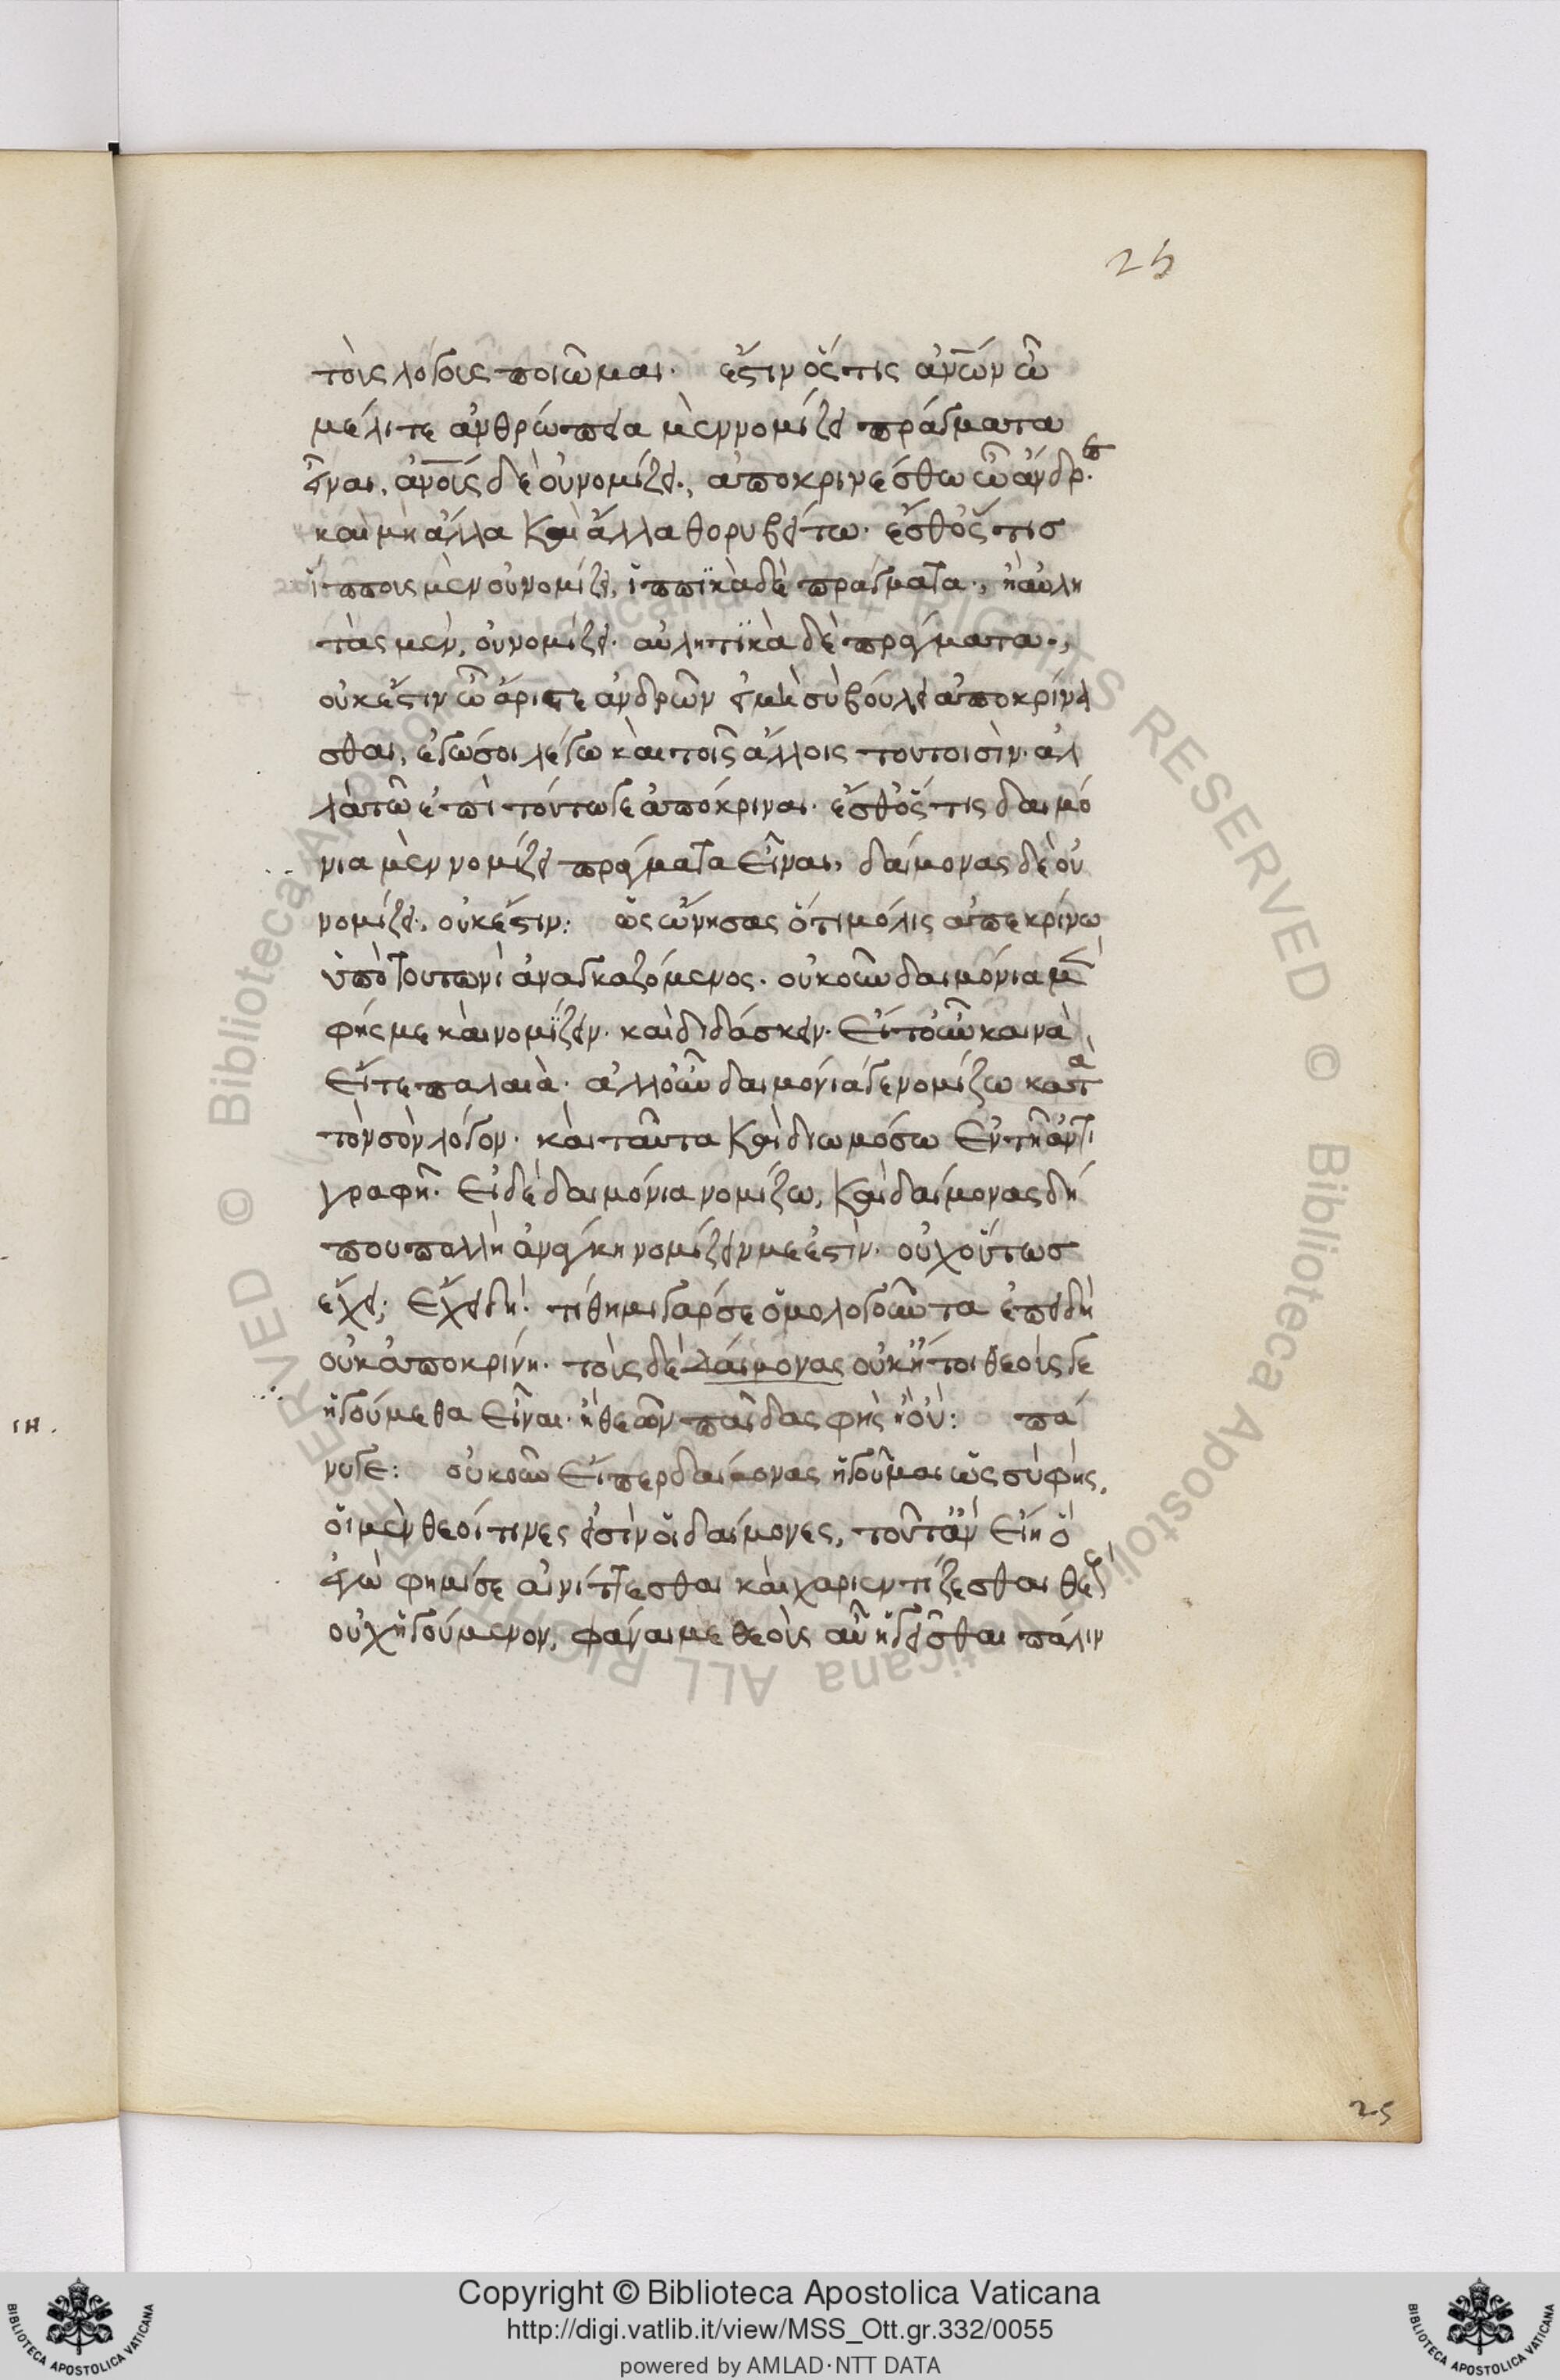 25
τοὺς λόγους ποιῶμαι. ἔστιν ὅστις ἀνων ὦ
μέλιτε ἀνθρώπεια μὲν νομίζει πράγματα
εἶναι, ἀνους δὲ οὐ νομίζει., ἀποκρινέσθω ὦ ἄνδρες.
καὶ μὴ ἄλλα καὶ ἄλλα θορυβείτω. ἔσθ' ὅστις
ἵππους μὲν οὐ νομίζει, ἱππικὰ δὲ πράγματα., ἢ αὐλη
τὰς μὲν, οὐ νομίζει. αὐλητικὰ δὲ πράγματα.,
οὐκ ἔστιν ὦ ἄριστε ἀνδρῶν εἰ μὴ σὺ βούλει ἀποκρίνε
σθαι, ἐγὼ σοι λέγω καὶ τοῖς ἄλλοις τουτοισίν. ἀλ
λὰ τῶ ἐπὶ τούτω γε ἀπόκριναι. ἔσθ' ὅστις δαιμό
νια μὲν νομίζει πράγματα εἶναι, δαίμονας δὲ οὐ
νομίζει., οὐκ ἔστιν: ὡς ὤνησας ὅτι μόλις ἀπεκρίνω
ὑπὸ τουτωνὶ ἀναγκαζόμενος. οὐκοῦν δαιμόνια μὲν
φής με καὶ νομίζειν. καὶ διδάσκειν. εἴτ' οὖν καινὰ
εἴτε παλαιὰ. ἀλλ' οὖν δαιμόνιά γε νομίζω κατὰ
τὸν σὸν λόγον. καὶ ταῦτα καὶ διωμόσω ἐν τῆ ἀντι
γραφῆ. εἰ δὲ δαιμόνια νομίζω, καὶ δαίμονας δή
που πολλὴ ἀνάγκη νομίζειν με ἐστίν. οὐχ οὕτως
ἔχει; ἔχει δή. τίθημι γάρ σε ὁμολογοῦντα ἐπειδὴ
οὐκ ἀποκρίνη. τοὺς δὲ δαίμονας οὐκ ἤτοι θεούς γε
ἡγούμεθα εἶναι. ἢ θεῶν παῖδας φὴς ἢ οὔ: πά
νυ γε: οὐκοῦν εἴπερ δαίμονας ἡγοῦμαι ὡς σὺ φής,
οἱ μὲν θεοί τινες εἰσὶν οἱ δαίμονες, τοῦτ' ἂν εἴη ὃ
ἐγώ φημί σε αἰνίττεσθαι καὶ χαριεντίζεσθαι θεοὺς
οὐχ ἡγούμενον, φάναι με θεοὺς αὖ ἡγεῖσθαι πάλιν
ιη.
25
Copyright © Biblioteca Apostolica Vaticana
http://digi.vatlib.it/view/MSS_Ott.gr.332/0055
powered by AMLAD·NTT DATA
BIBLIOTECA APOSTOLICA VATICANA
BIBLIOTECA APOSTOLICA VATICANA
© Biblioteca Apostolica Vaticana ALL RIGHTS RESERVED © Biblioteca Apostolica Vaticana ALL RIGHTS RESERVED